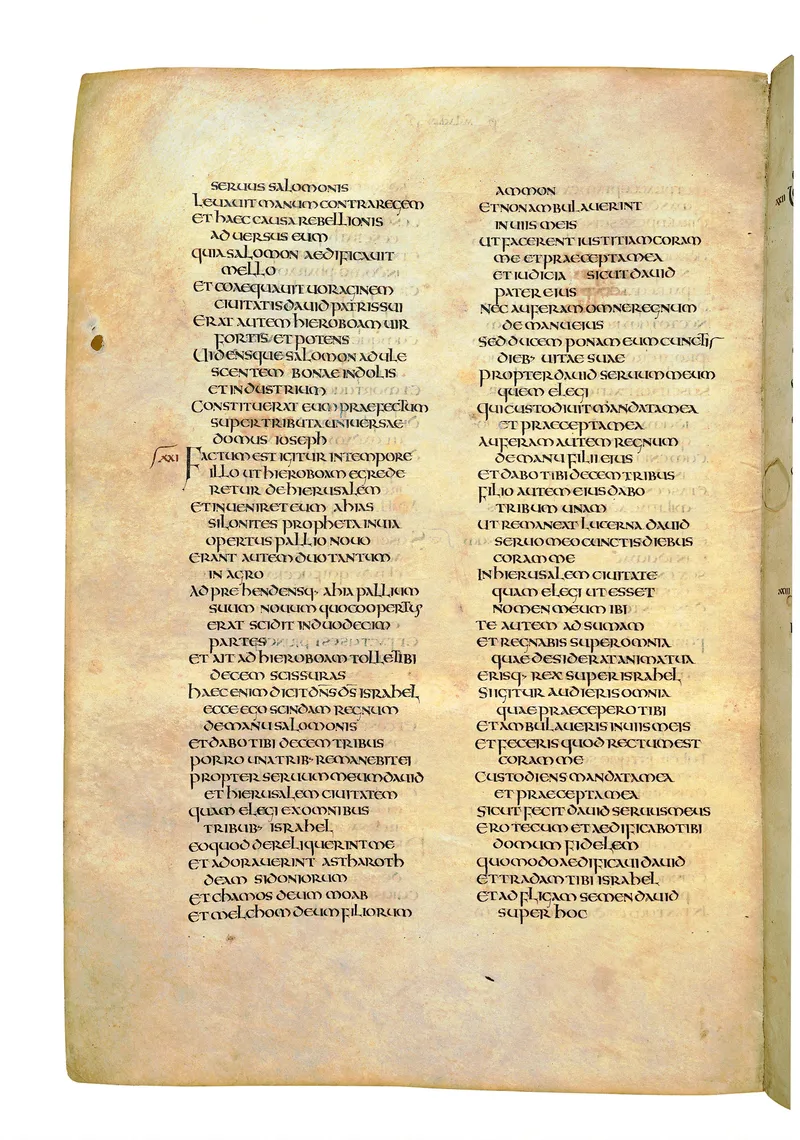 seruus salomonis
Leuauit manum contra regem
et haec causa rebellionis
aduersus eum
quia salomon aedificauit
mello
et coaequauit uoraginem
ciuitatis dauid patris sui
erat autem hieroboam uir
fortis et potens
Uidensque salomon adule
scentem bonae indolis
et industrium
Constituerat eum praefectum
super tributa uniuersae
domus ioseph
XXI
Factum est igitur in tempore
illo ut hieroboam egrede
retur de hierusalem
et inueniret eum ahias
silonites propheta in uia
opertus pallio nouo
erant autem duo tantum
in agro
adprehendensq· ahia pallium
suum nouum quo coopertus
erat scidit in duodecim
partes
et ait ad hieroboam tolle tibi
decem scissuras
haec enim dicit dns ds israhel
ecce ego scindam regnum
de manu salomonis
et dabo tibi decem tribus
porro una trib· remanebit ei
propter seruum meum dauid
et hierusalem ciuitatem
quam elegi ex omnibus
tribub· israhel
eo quod dereliquerint me
et adorauerint astharoth
deam sidoniorum
et chamos deum moab
et melchom deum filiorum
ammon
et non ambulauerint
in uiis meis
ut facerent iustitiam coram
me et praecepta mea
et iudicia sicut dauid
pater eius
Nec auferam omne regnum
de manu eius
Sed ducem ponam eum cunctis
dieb· uitae suae
propter dauid seruum meum
quem elegi
qui custodiuit mandata mea
et praecepta mea
auferam autem regnum
de manu filii eius
et dabo tibi decem tribus
filio autem eius dabo
tribum unam
ut remaneat lucerna dauid
seruo meo cunctis diebus
coram me
In hierusalem ciuitate
quam elegi ut esset
nomen meum ibi
te autem adsumam
et regnabis super omnia
quae desiderat anima tua
erisq· rex super israhel
Si igitur audieris omnia
quae praecepero tibi
et ambulaueris in uiis meis
et feceris quod rectum est
coram me
Custodiens mandata mea
et praecepta mea
Sicut fecit dauid seruus meus
ero tecum et aedificabo tibi
domum fidelem
quomodo aedificaui dauid
et tradam tibi israhel
et adfligam semen dauid
super hoc